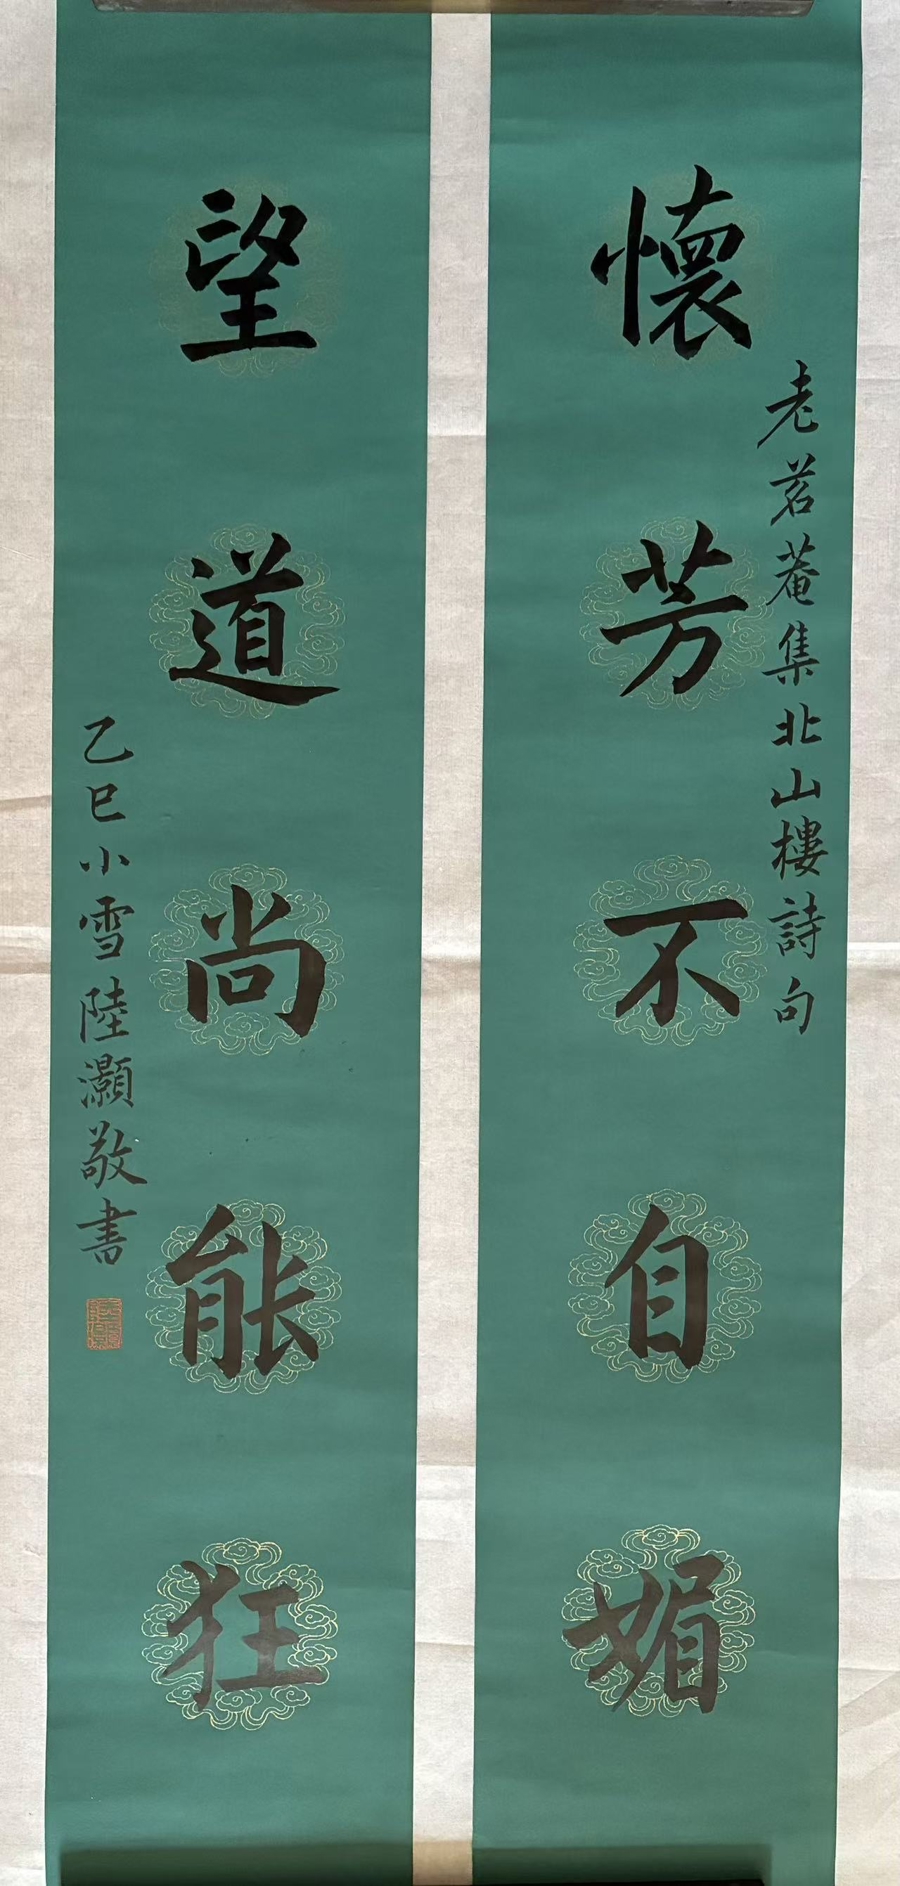 懷芳不自媚
老茗菴集北山樓詩句
望道尚能狂
乙巳小雪陸灝敬書